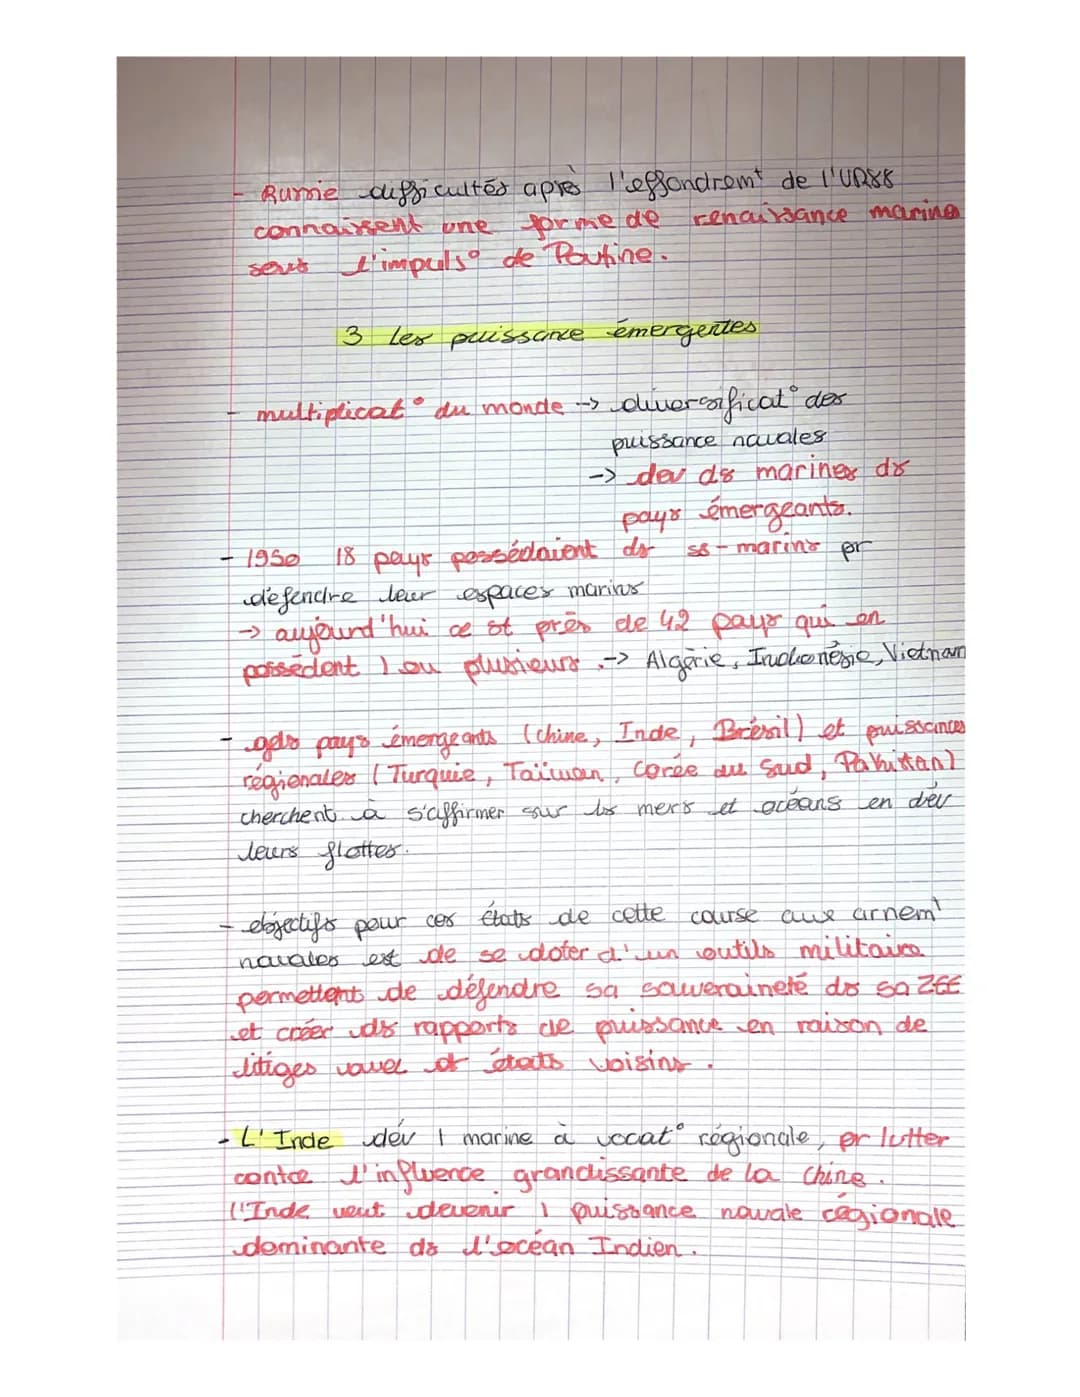 - Russie difficultés après l'effondremt de l'URSS
connaissent une forme de renaissance marine
sous l'impulso de Poutine.
3 Les puissance émergentes
- multiplicato du monde -> diversificato des
puissance navales
-> dev ds marines ds
pays émergeants.
- 1950 18 pays possédaient ds ss-marins pr
défendre leur espaces marins
-> aujourd'hui ce st près de 42 pays qui en
possèdent 1 ou plusieurs.-> Algérie, Indonésie, Vietnam
- gds pays émergeants (chine, Inde, Brésil) et puissances
régionales (Turquie, Taïwan, Corée du Sud, Pakistan)
cherchent à s'affirmer sur ls mers et océans en dév
leurs flottes.
- objectifs pour ces États de cette course aux armemt
navales est de se doter d'un outils militaire
permettent de défendre sa souveraineté ds sa ZEE
et créer ds rapports de puissance en raison de
litiges avec états voisins.
- L'Inde dév 1 marine à vocato régionale, pr lutter
contre l'influence grandissante de la Chine.
l'Inde veut devenir 1 puissance navale régionale
dominante ds l'océan Indien.